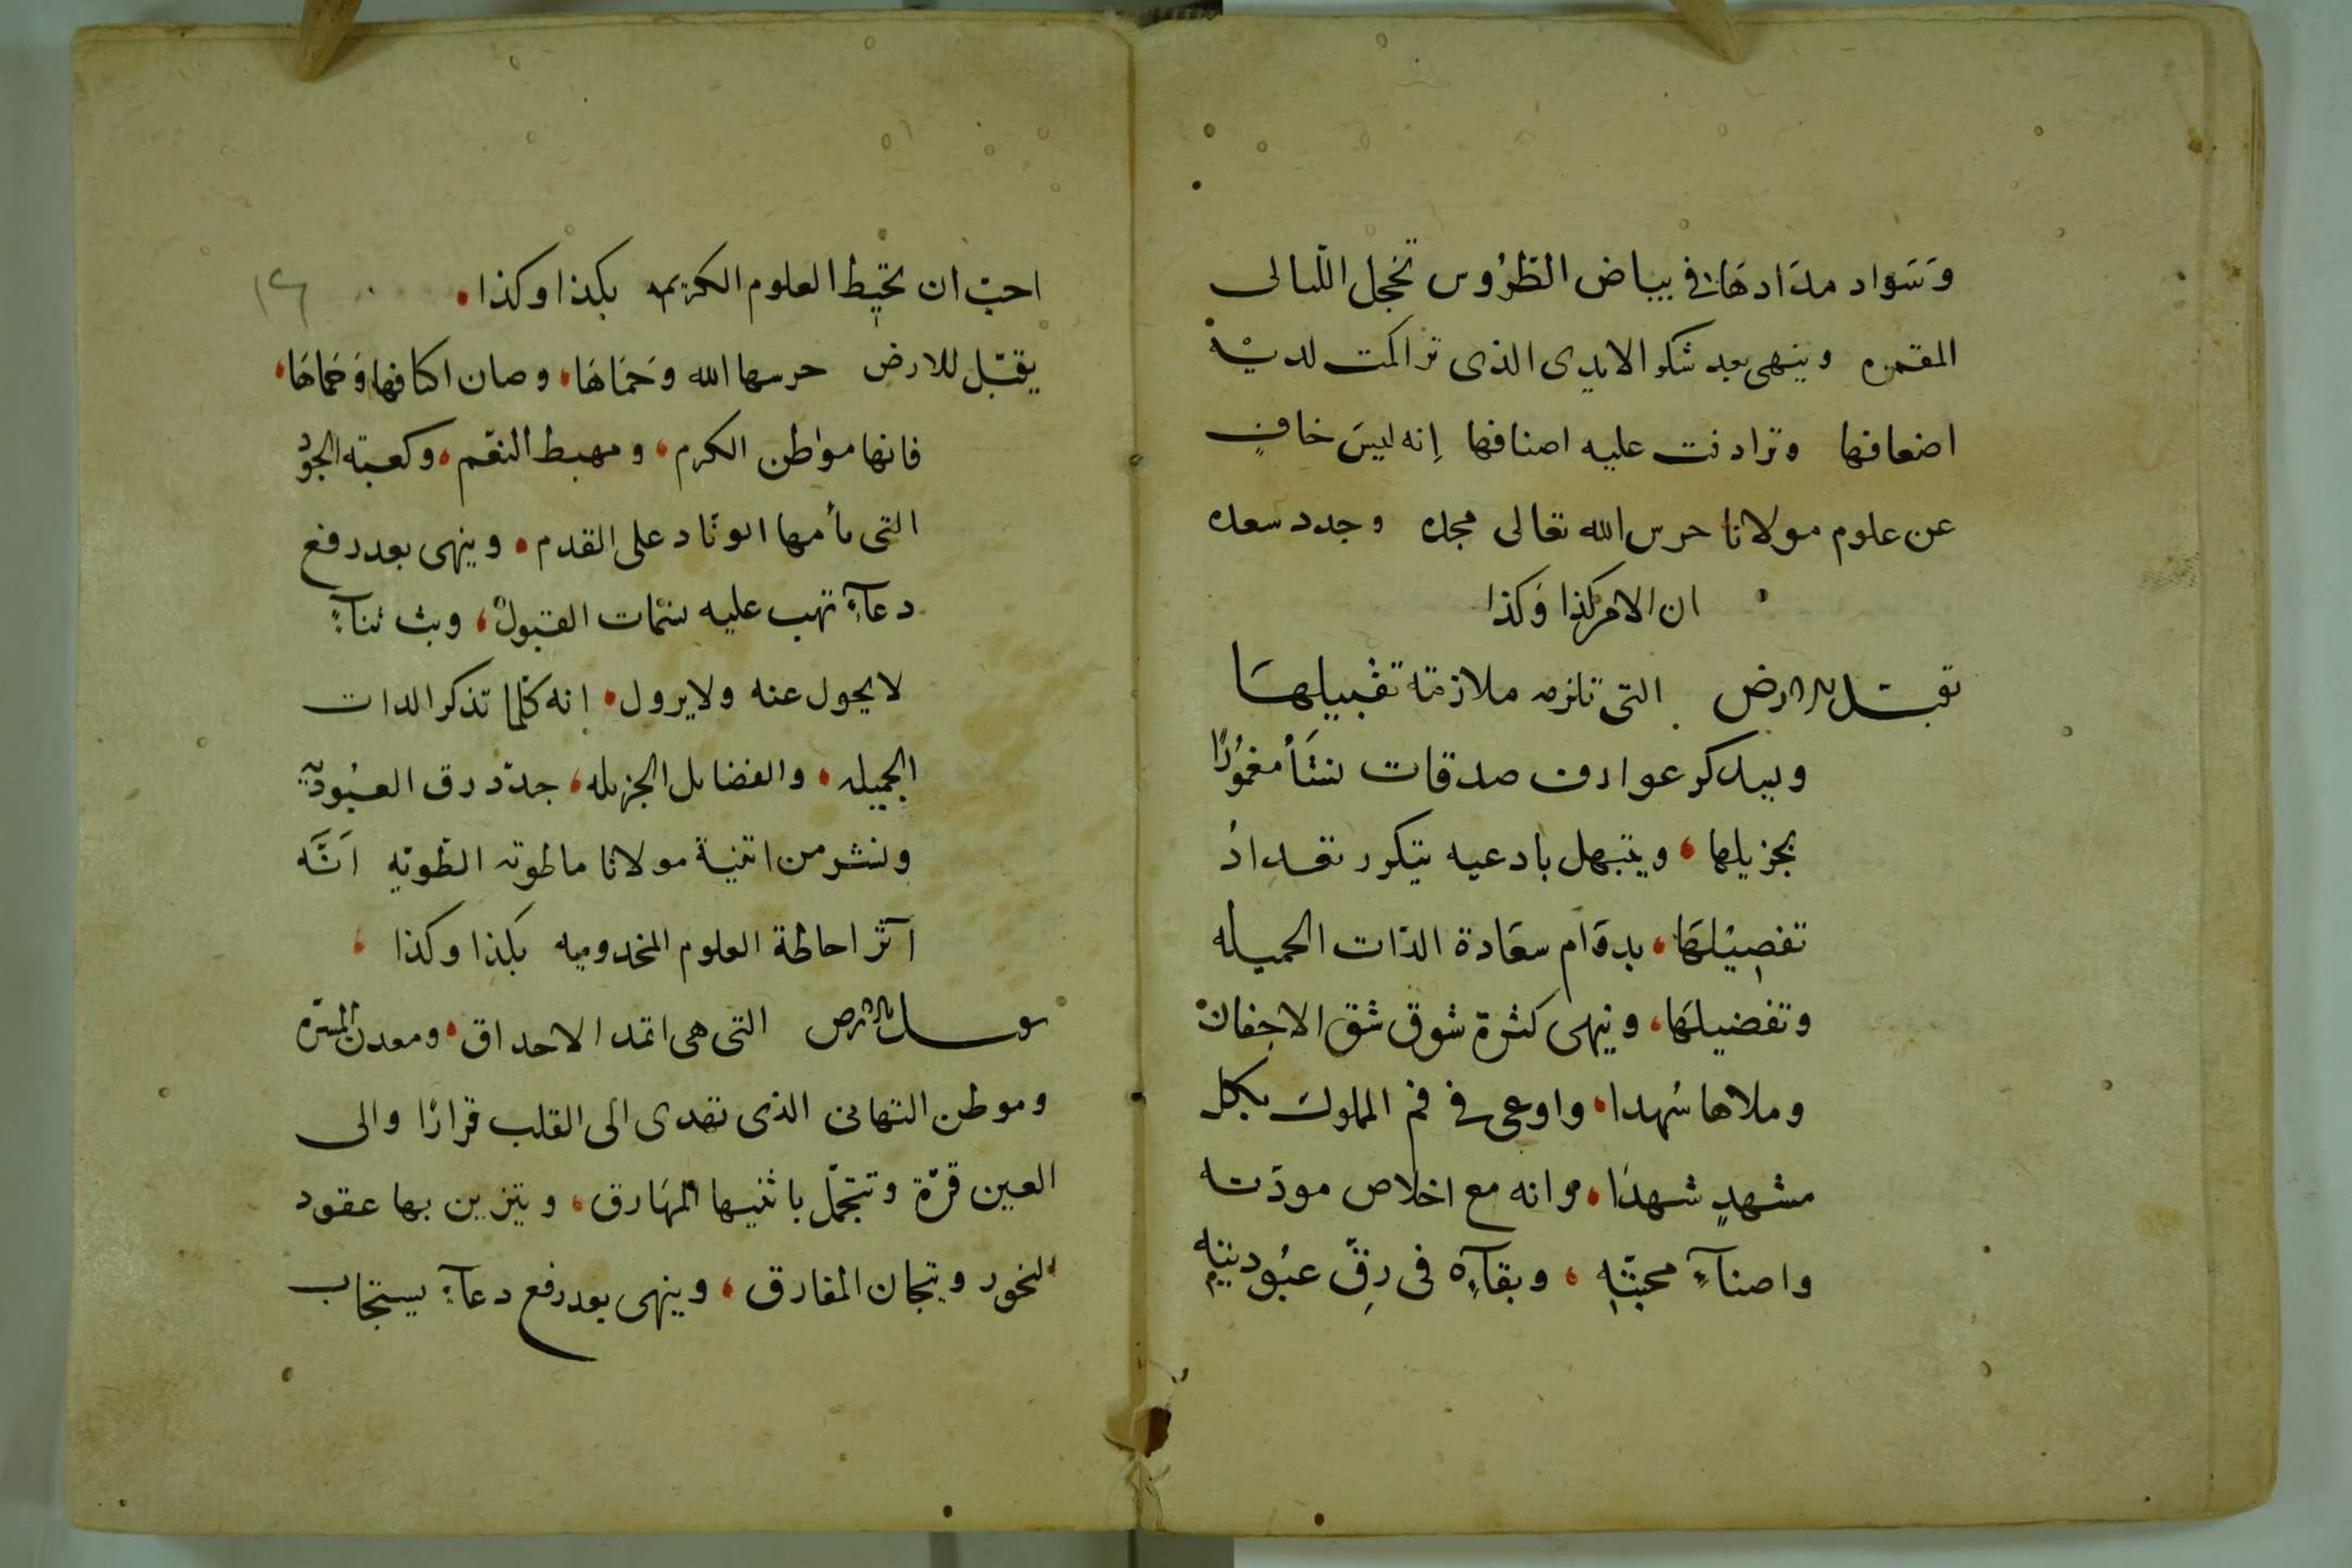 وَسَواد مدَادهَا في بياض الطرُوس تخجل الليالى
المقمره وينهى بعد شكر الايدى الذى تراكمت لديه
اضعافها وترادفت عليه اصنافها إنه ليسَ خافٍ
عن علوم مولانا حرس الله تعالى مجده وجدد سعده
ان الامر كذا وَكذا
تقبل الارض التى تلزمه ملازمة تقبيلهَا
عوارف صدقات مغمورًا
بجزيلها، ويبتهل بادعيه يتكرر تعداد
تفصيلهَا، بدوَام سعَادة الذات الجميله
وتفضيلهَا، وينهى كثرة شوق شق الاجفان
وملاها سُهدا، واوعى في فم المملوك بكل
مشهدٍ شهدًا، وانه مع اخلاص مودته
واصناءِ محبته، وبقآءِه فى رِقّ عبُوديته
احبّ ان تحيط العلوم الكريمه بكذا وكذا.
١٤
يقبّل للارض حرسها الله وَحمَاهَا، وصان اكنافها وَحماهَا،
فانها مواطن الكرم، ومهبط النعم، وكعبة الجوُد
التى يأمها الوفاد على القدم. وينهى بعد رفع
دعآءٍ تهب عليه نسمَات القبول، وبث ثنآءٍ
لا يحول عنه ولا يزول. انه كلما تذكر الذات
الجميله، والفضايل الجزيله، جدّد رق العبُوديّة
ونشر من اثنية مولانا ما طوته الطويه اَنّه
آثر احاطة العلوم المخدوميه بكذا وكذا،
يقبل الارض التى هى اثمد الاحداق، ومعدن المسرّة
وموطن التهانى الذى تهدى الى القلب قرارًا والى
العين قرّة وتتجمّل باثنيها المهَارق، وتتزين بها عقود
النحور وتيجان المفارق، وينهى بعد رفع دعآءٍ يستجاب